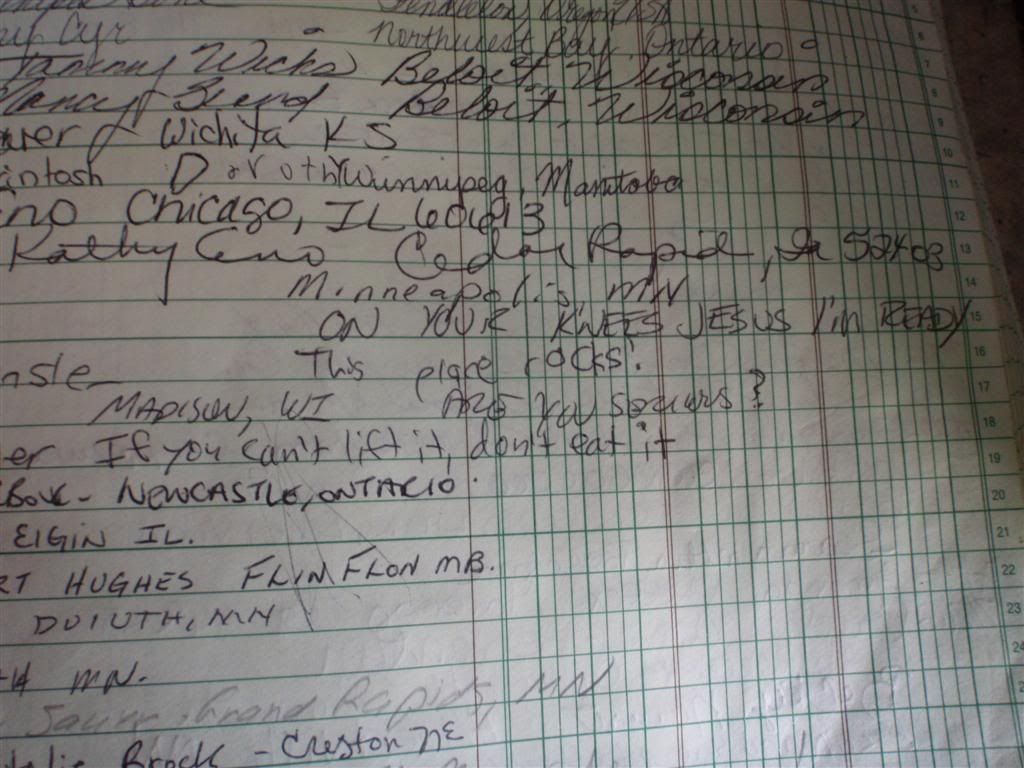 Cyr Northwest Bay, Ontario
Tammy Wicks Beloit, Wisconsin
Nancy Beloit, Wisconsin
Wichita KS
intosh Dorothy Winnipeg, Manitoba
no Chicago, IL 60613
Kathy Eno Cedar Rapid, Ia 52403
Minneapolis, MN
ON YOUR KNEES JESUS I'm READY
nste This place rocks!
MADISON, WI ARE YOU SERIOUS?
er If you can't lift it, don't eat it
NEWCASTLE, ONTARIO.
ElGIN IL.
RT HUGHES FLIN FLON MB.
DUlUTH, MN
MN.
Grand Rapids, MN
Brock - Creston NE
5
6
7
8
9
10
11
12
13
14
15
16
17
18
19
20
21
22
23
24